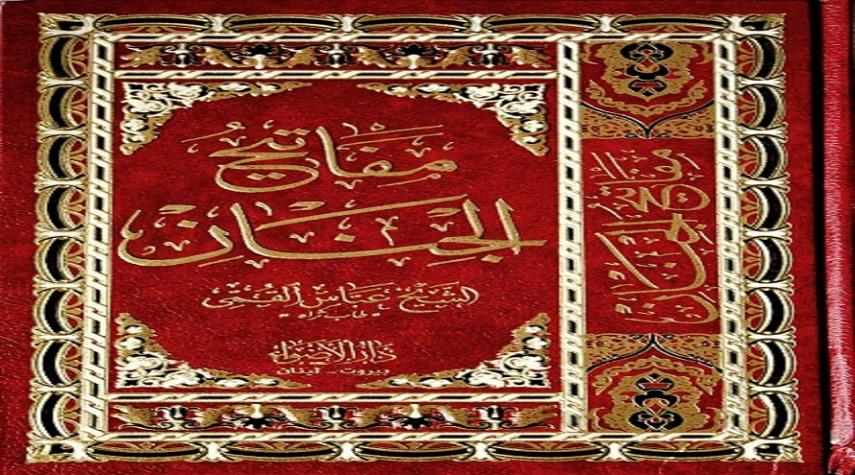 مفاتيحُ
الجنان
الشيخ عبّاس القمّي
طاب ثراه
دار الأضواء
بيروت - لبنان
مفاتيح الجنان